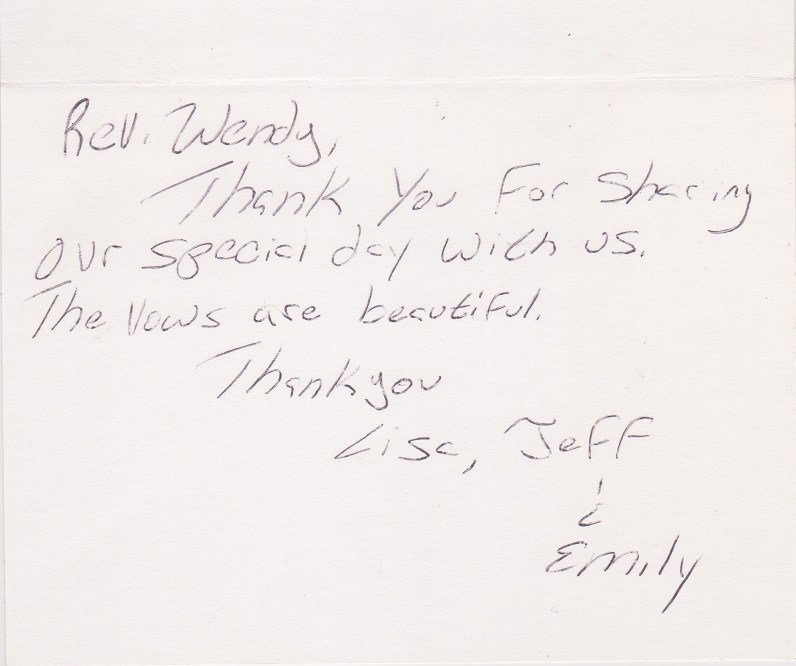 Rev. Wendy,
Thank You For Sharing
our special day with us.
The vows are beautiful.
Thankyou
Lisa, Jeff
&
Emily